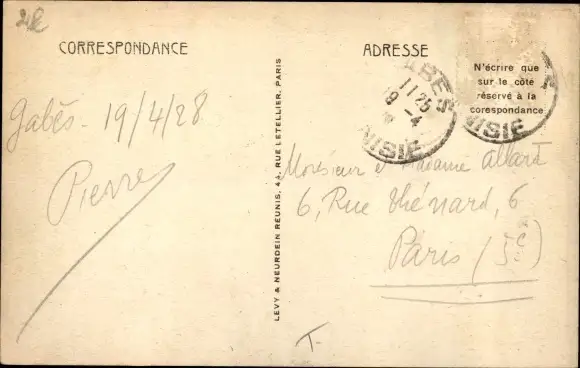 CORRESPONDANCE
Gabès - 19/4/28
Pierre
LEVY & NEURDEIN REUNIS, 44, RUE LETELLIER, PARIS
ADRESSE
N'écrire que
sur le côté
réservé à la
corespondance
ABES
11 25
19 -4
NISIE
NISIE
Monsieur et Madame Allard
6, Rue Thénard, 6
Paris (5e)
T